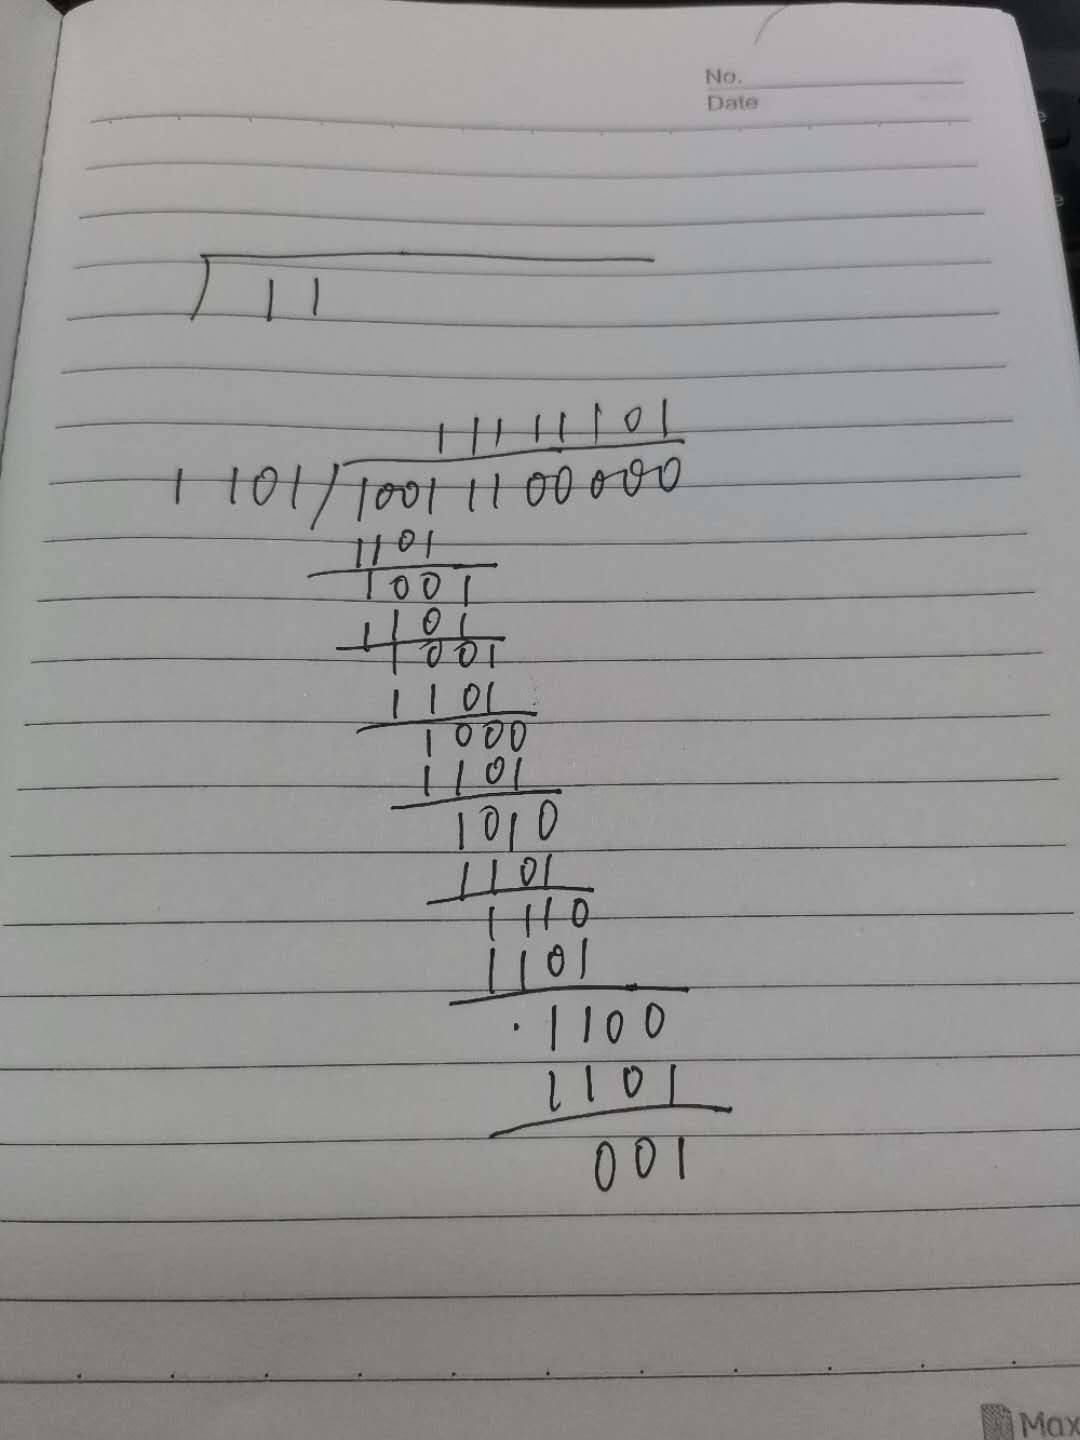 No.
Date
11
11111101
1101/10011100000
1101
1001
1101
1001
1101
1000
1101
1010
1101
1110
1101
.1100
1101
001
Max